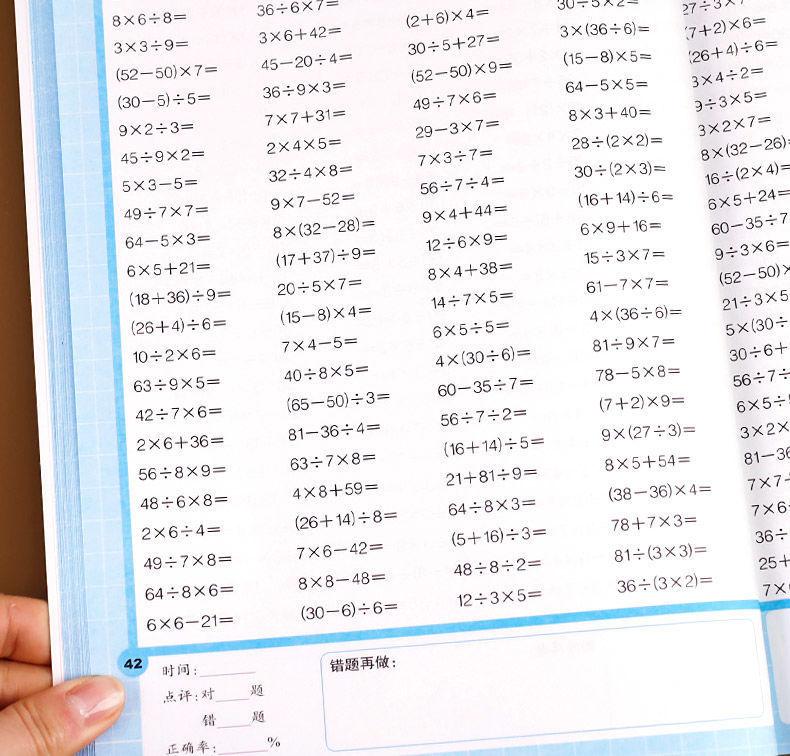 8×6÷8=
3×3÷9=
(52−50)×7=
(30−5)÷5=
9×2÷3=
45÷9×2=
5×3−5=
49÷7×7=
64−5×3=
6×5+21=
(18+36)÷9=
(26+4)÷6=
10÷2×6=
63÷9×5=
42÷7×6=
2×6+36=
56÷8×9=
48÷6×8=
2×6÷4=
49÷7×8=
64÷8×6=
6×6−21=
36÷6×7=
3×6+42=
45−20÷4=
36÷9×3=
7×7+31=
2×4×5=
32÷4×8=
9×7−52=
8×(32−28)=
(17+37)÷9=
20÷5×7=
(15−8)×4=
7×4−5=
40÷8×5=
(65−50)÷3=
81−36÷4=
63÷7×8=
4×8+59=
(26+14)÷8=
7×6−42=
8×8−48=
(30−6)÷6=
(2+6)×4=
30÷5+27=
(52−50)×9=
49÷7×6=
29−3×7=
7×3÷7=
56÷7÷4=
9×4+44=
12÷6×9=
8×4+38=
14÷7×5=
6×5÷5=
4×(30÷6)=
60−35÷7=
56÷7÷2=
(16+14)÷5=
21+81÷9=
64÷8×3=
(5+16)÷3=
48÷8÷2=
12÷3×5=
30÷5×2=
3×(36÷6)=
(15−8)×5=
64−5×5=
8×3+40=
28÷(2×2)=
30÷(2×3)=
(16+14)÷6=
6×9+16=
15÷3×7=
61−7×7=
4×(36÷6)=
81÷9×7=
78−5×8=
(7+2)×9=
9×(27÷3)=
8×5+54=
(38−36)×4=
78+7×3=
81÷(3×3)=
36÷(3×2)=
27÷3×
(7+2)×6=
(26+4)÷6=
3×4÷2=
9÷3×5=
3×2×7=
8×(32−26)
16÷(2×4)=
6×5+24=
60−35÷7
9÷3×6=
(52−50)×
21÷3×5
5×(30÷
30÷6+
56÷7÷
6×5÷
3×2×
81−36
7×7
7×6
36÷
25+
7×
42
时间:
点评:对 题
错 题
正确率: %
错题再做: